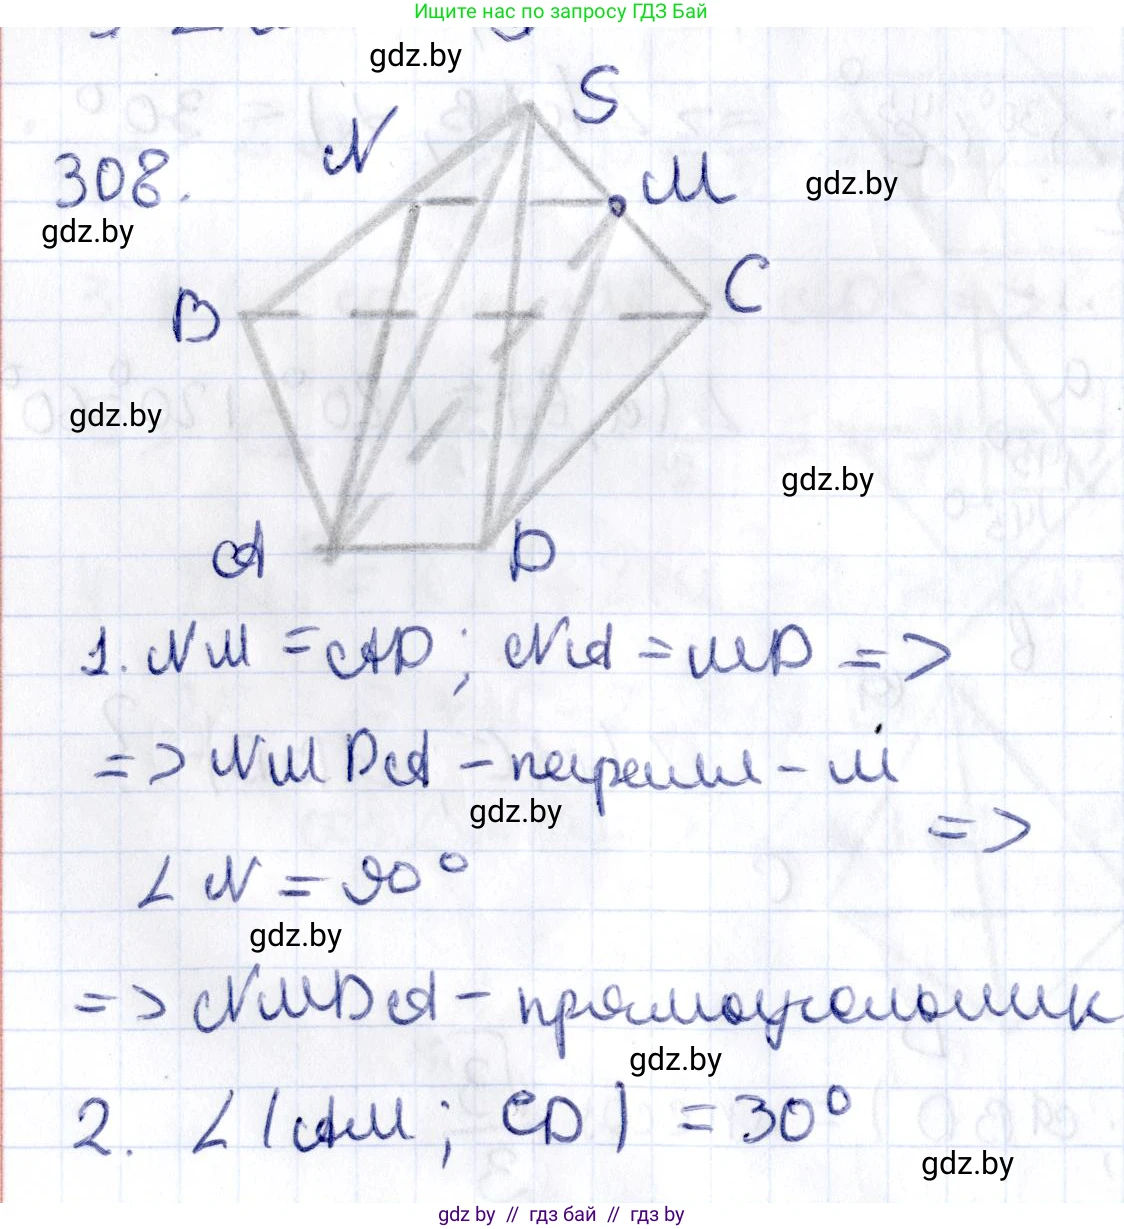 Ищите нас по запросу ГДЗ Бай
gdz.by
S
N
308.
M
gdz.by
gdz.by
B
C
gdz.by
gdz.by
A
D
1. NM = AD; NA = MD =>
=> NMDA - паралл - м
gdz.by
=>
∠N = 90°
gdz.by
=> NMDA - прямоугольник
gdz.by
2. ∠(AM; CD) = 30°
gdz.by
gdz.by // гдз бай // гдз by